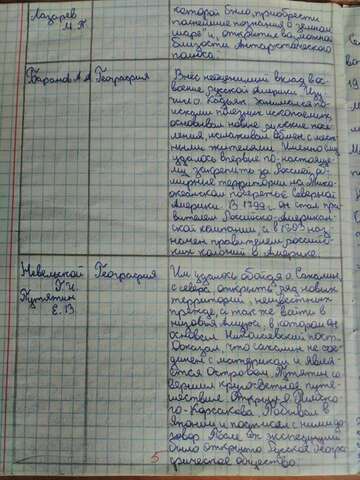 Лазарев
М.П
которой было, приобрести
полнейшие познания о земном
шаре" и, открытие возможной
близости Антарктического
полюса.
Баранов А.А География
Внёс неоценимый вклад в ос-
воение русской Америки. Изу-
чил о. Кадьяк занимался по-
исками полезных ископаемых,
основывал новые русские посе-
ления, и налаживал обмен с мест-
ными жителями. Именно ему
удалось впервые по-настояще-
му закрепить за Россией об-
ширные территории на Тихо-
океанском побережье Северной
Америки. В 1799г он стал пра-
вителем Российско-Американ-
ской компании, а в 1803 наз-
начен правителем российс-
ких колоний в Америке.
Невельской География
Г.И
Путятин
Е.В
Им удалось обойдя о Сахалин
с севера, открыть ряд новых
территорий, неизвестных
прежде, а так же войти в
низовья Амура, в котором он
основал Николаевский пост.
Доказал, что Сахалин не сое-
динен с материком и явля-
ется островом. Путятин со-
вершил кругосветное путе-
шествие. Открыл о.
го-Корсакова. Побывал в
Японии и подписал с ними до
говор После экспедиции
было открыто Русское геогра-
фическое общество.
5